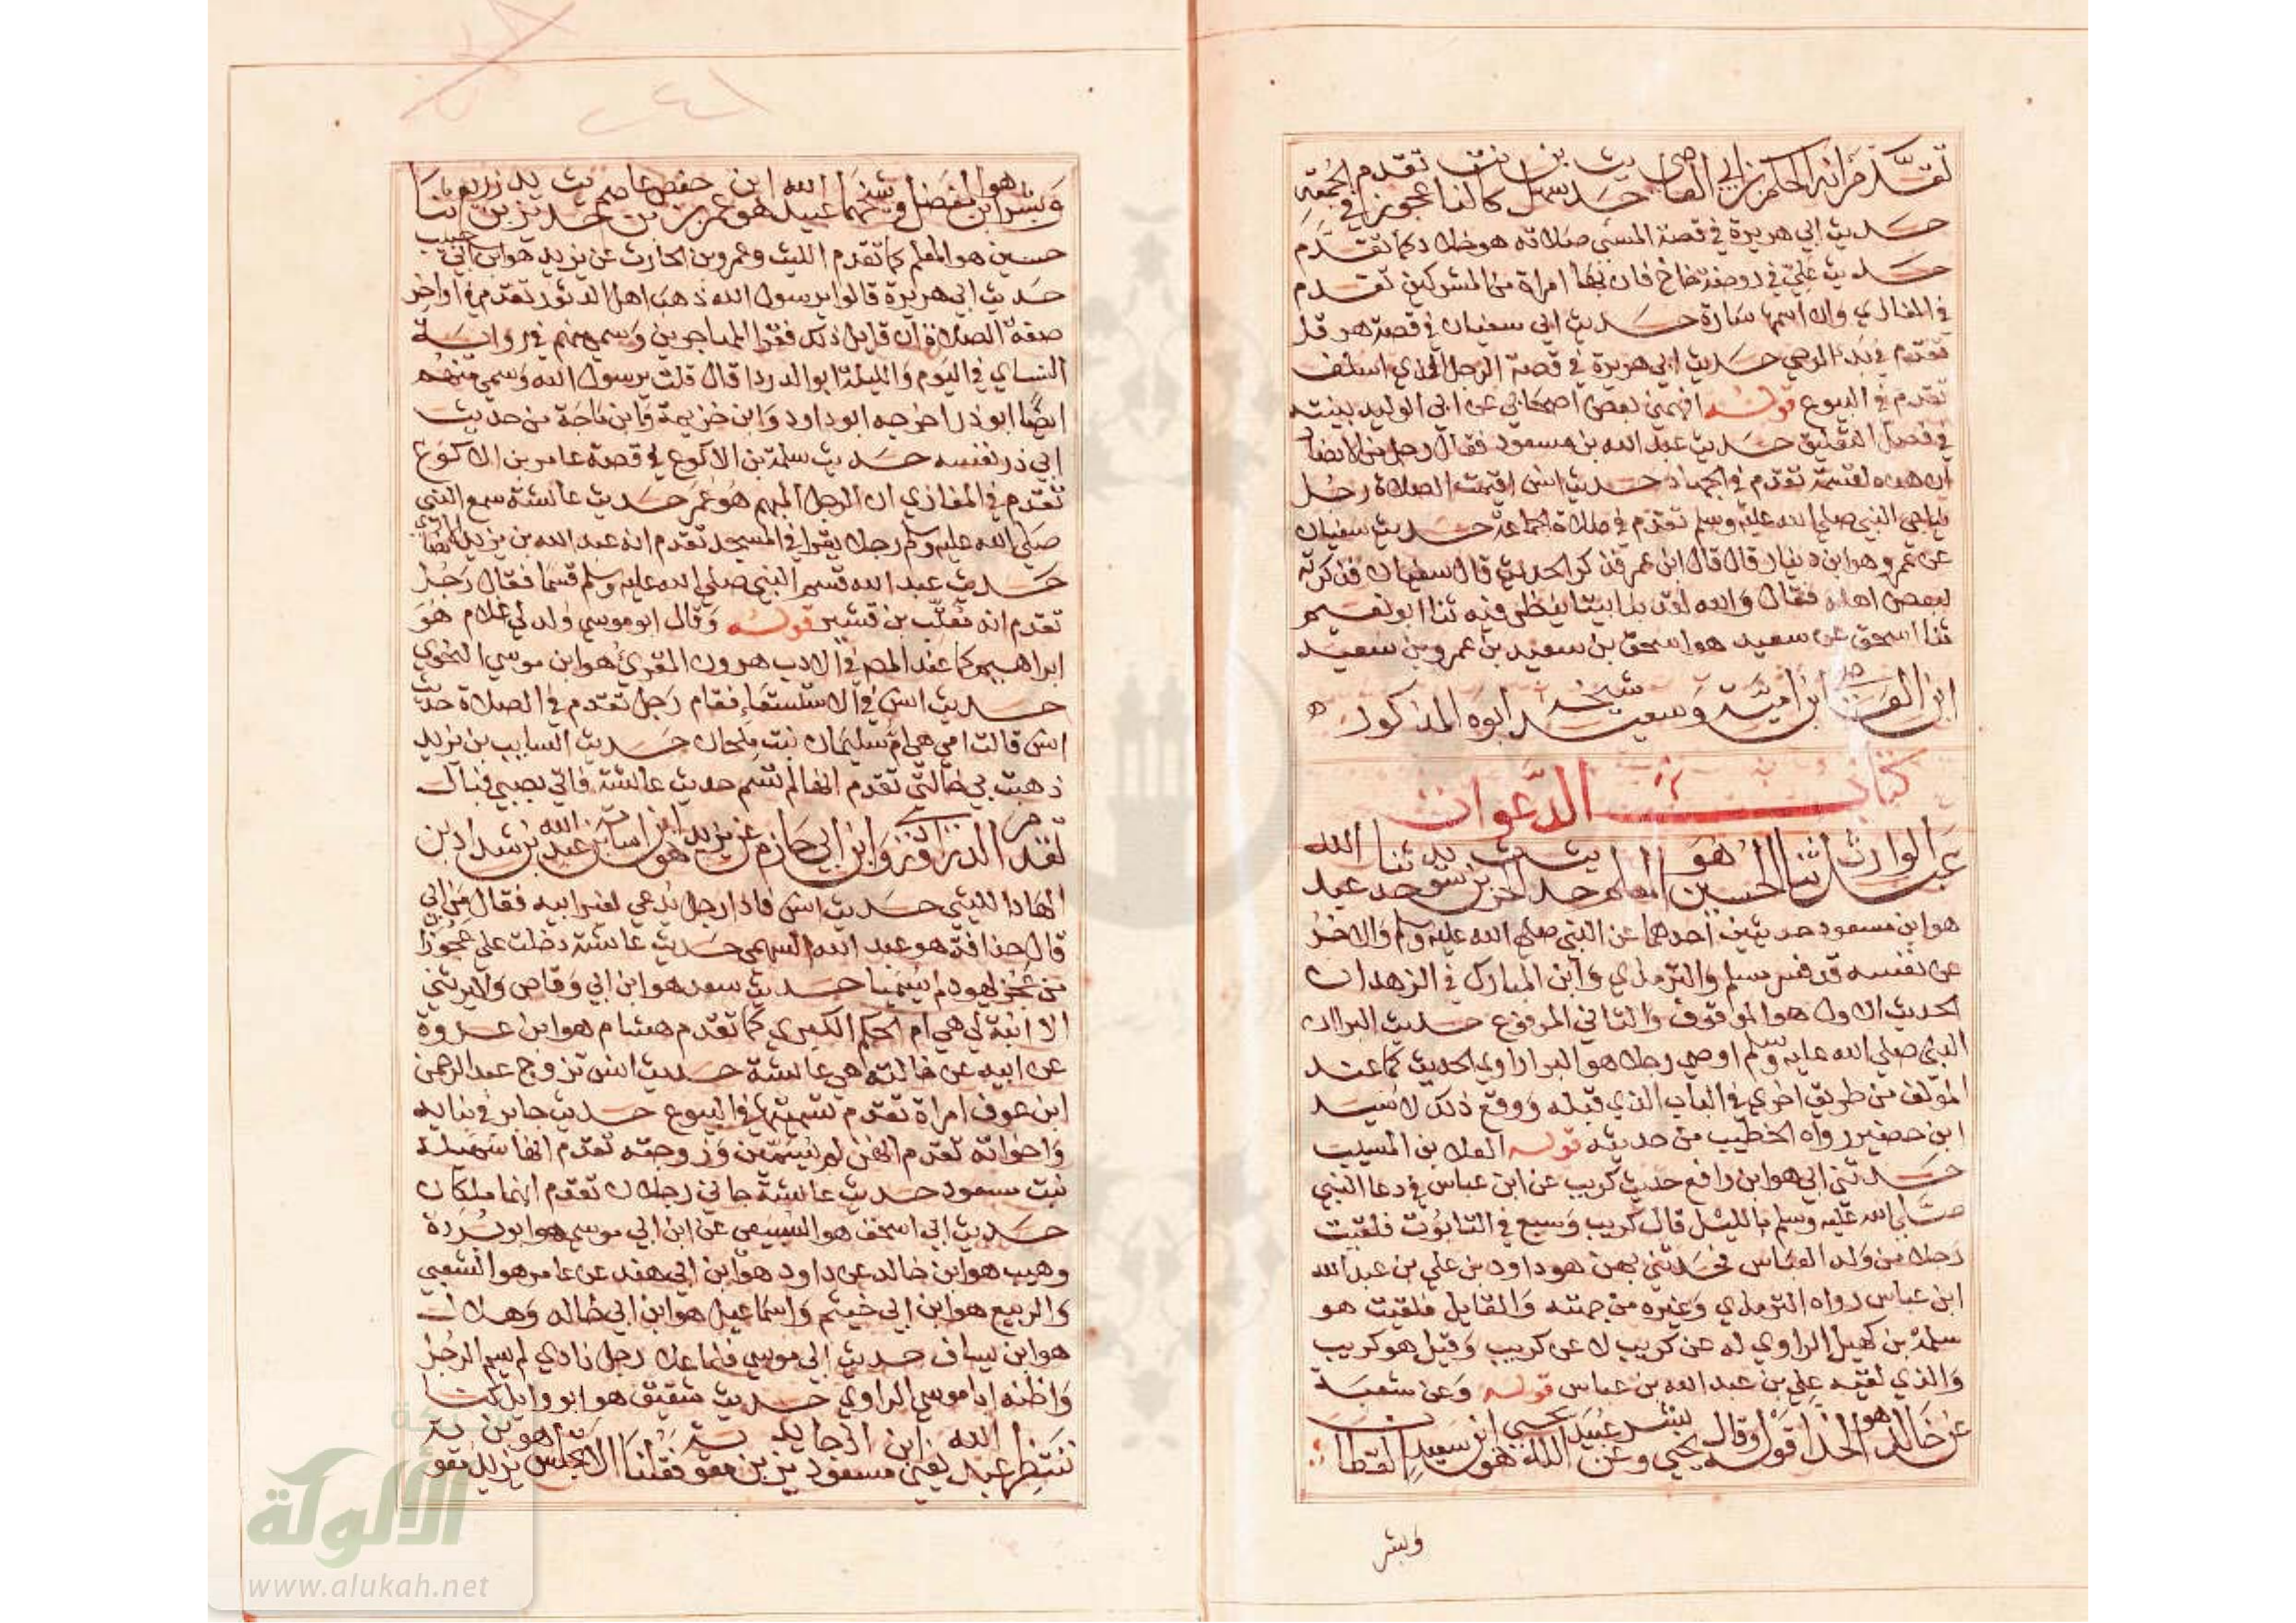 تقدم انه الحكم بن ابي العاصي حديث سهل كانت لنا عجوز تقدم في الجمعة
حديث ابي هريرة في قصة المسي صلاته هو خلاد كما تقدم
حديث علي في روضة خاخ فان بها امراة من المشركين تقدم
في المغازي وان اسمها سارة حديث ابي سفيان في قصة هرقل
تقدم في بدء الوحي حديث ابي هريرة في قصة الرجل الذي استلف
تقدم في البيوع قوله افهمني بعض اصحابي عن ابي الوليد بينته
في فصل التعليق حديث عبد الله بن مسعود فقال رجل من الانصار
ان هذه لقسمة تقدم في الجهاد حديث انس اقيمت الصلاة ورجل
يناجي النبي صلي الله عليه وسلم تقدم في صلاة الجماعة حديث سفيان
عن عمرو هو ابن دينار قال قال ابن عمر فذكر الحديث قال سفيان فذكرته
لبعض اهله فقال والله لقد بنا بيتا ينظر فيه ثنا ابو نعيم
ثنا اسحق عن سعيد هو اسحق بن سعيد بن عمرو بن سعيد
ابن العاص ابن امية وسعيد شيخه ابوه المذكور
كتاب الدعوات
عبد الوارث ثنا الحسين هو المعلم حديث عبد الله
هو ابن مسعود حديثين احدهما عن النبي صلي الله عليه وسلم والاخر
عن نفسه قد فسر مسلم والترمذي وابن المبارك في الزهد ان
الحديث الاول هو الموقوف والثاني المرفوع حديث البرا ان
النبي صلي الله عليه وسلم اوصي رجلا هو البرا راوي الحديث كما عند
المولف من طريق اخري في الباب الذي قبله ووقع ذلك لاسيد
ابن حضير رواه الخطيب من حديثه قوله العلا بن المسيب
حدثني ابي هو ابن رافع حديث كريب عن ابن عباس في دعا النبي
صلي الله عليه وسلم بالليل قال كريب وسبع في التابوت فلقيت
رجلا من ولد العباس فحدثني بهن هو داود بن علي بن عبد الله
ابن عباس رواه الترمذي وغيره من جهته والقايل فلقيت هو
سلمة بن كهيل الراوي له عن كريب لا عن كريب وقيل هو كريب
والذي لقيه علي بن عبد الله بن عباس قوله وعن شعبة
عن خالد هو الحذا قوله وقال يحيي وبشر عن عبيد الله هو يحيي ابن سعيد القطان
وبشر
وبشر هو ابن المفضل وشيخهما عبيد الله هو ابن عمر بن حفص بن عاصم حديث يزيد بن زريع ثنا
حسين هو المعلم كما تقدم الليث وعمرو بن الحارث عن يزيد هو ابن ابي حبيب
حديث ابي هريرة قالوا يرسول الله ذهب اهل الدثور تقدم في اواخر
صفة الصلاة ان قايل ذلك فقرا المهاجرين وسمي منهم في رواية
النساي في اليوم والليلة ابو الدردا قال قلت يرسول الله وسمي منهم
ايضا ابو ذر اخرجه ابو داود وابن خزيمة وابن ماجة من حديث
ابي ذر نفسه حديث سلمة بن الاكوع في قصة عامر بن الاكوع
تقدم في المغازي ان الرجل المبهم هو عمر حديث عايشة سمع النبي
صلي الله عليه وسلم رجلا يقرا في المسجد تقدم انه عبد الله بن يزيد
حديث عبد الله قسم النبي صلي الله عليه وسلم قسما فقال رجل
تقدم انه بن قشير قوله وقال ابو موسي ولد لي غلام هو
ابراهيم كما عند المص في الادب هرون المقري هو ابن موسي النحوي
حديث انس في الاستسقا فقام رجل تقدم في الصلاة حديث
انس قالت امي هي ام سليم بنت ملحان حديث السايب بن يزيد
ذهبت بي خالتي تقدم انها لم تسم حديث عايشة فاتي بصبي فبال
تقدم ابن ابي حازم والدراوردي عن يزيد هو ابن عبد الله بن اسامة بن شداد بن
الهاد الليثي حديث انس فاذا رجل يدعي لغير ابيه فقال من ابي
قال حذافة هو عبد الله السهمي حديث عايشة دخلت علي عجوزا
من عجز يهود لم يسميا حديث سعد هو ابن ابي وقاص ولا يرثني
الا ابنة لي هي ام الحكم الكبري كما تقدم هشام هو ابن عروة
عن ابيه عن خالته هي عايشة حديث انس تزوج عبد الرحمن
ابن عوف امراة تقدم تسميتها في البيوع حديث جابر في بناته
واخواته تقدم انهن لم يسمين وزوجته تقدم انها سهيلة
بنت مسعود حديث عايشة جاني رجلان تقدم انهما ملكان
حديث ابي اسحق هو السبيعي عن ابن ابي موسي هو ابو بردة
وهيب هو ابن خالد عن داود هو ابن ابي هند عن عامر هو الشعبي
والربيع هو ابن خثيم واسماعيل هو ابن ابي خالد وهلال
هو ابن يساف حديث ابي موسي فلما علا رجل نادي لم يسم الرجل
واظنه ابا موسي الراوي حديث شقيق هو ابو وايل كنا
ننتظر عبد الله يعني ابن مسعود اذ جا يزيد بن معوية فقلنا الا تجلس هو يزيد بن
شبكة
الألوكة
www.alukah.net